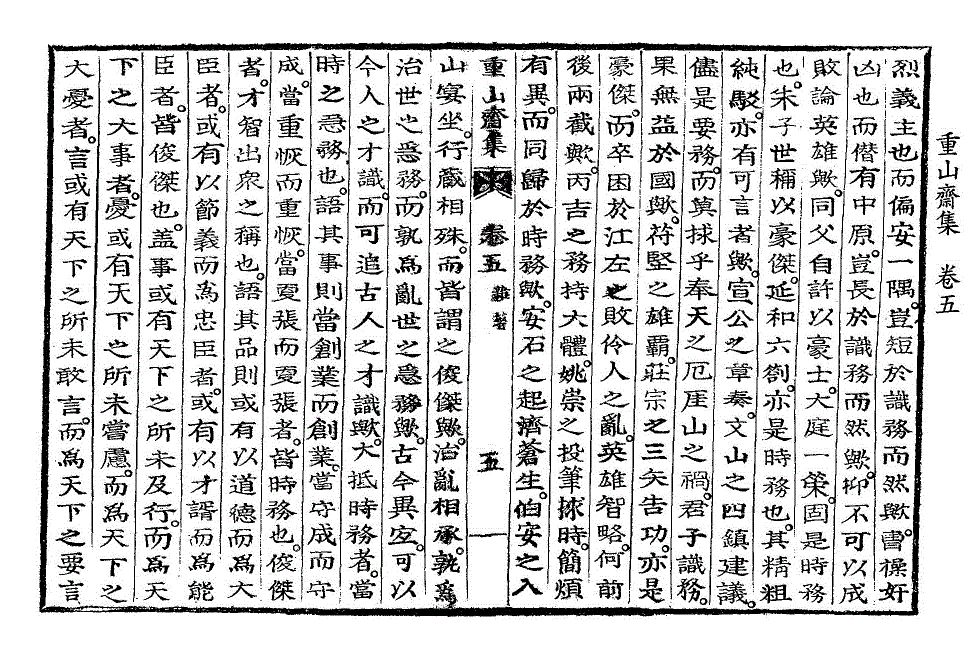 重山齋集 卷五
烈義主也而偏安一隅。豈短於識務而然歟。曹操奸
凶也而僭有中原。豈長於識務而然歟。抑不可以成
敗論英雄歟。同父自許以豪士。大庭一策。固是時務
也。朱子世稱以豪傑。延和六劄。亦是時務也。其精粗
純駁。亦有可言者歟。宣公之章奏。文山之四鎭建議。
儘是要務。而莫捄乎奉天之厄厓山之禍。君子識務。
果無益於國歟。苻堅之雄霸。莊宗之三矢告功。亦是
豪傑。而卒困於江左之敗伶人之亂。英雄智略。何前
後兩截歟。丙吉之務持大體。姚崇之投筆捄時。簡煩
有異。而同歸於時務歟。安石之起濟蒼生。伯安之入
重山齋集 卷五 雜著 五
山宴坐。行藏相殊。而皆謂之俊傑歟。治亂相承。孰爲
治世之急務。而孰爲亂世之急務歟。古今異宜。可以
今人之才識。而可追古人之才識歟。大抵時務者。當
時之急務也。語其事則當創業而創業。當守成而守
成。當重恢而重恢。當更張而更張者。皆時務也。俊傑
者。才智出衆之稱也。語其品則或有以道德而爲大
臣者。或有以節義而爲忠臣者。或有以才諝而爲能
臣者。皆俊傑也。盖事或有天下之所未及行。而爲天
下之大事者。憂或有天下之所未嘗慮。而爲天下之
大憂者。言或有天下之所未敢言。而爲天下之要言